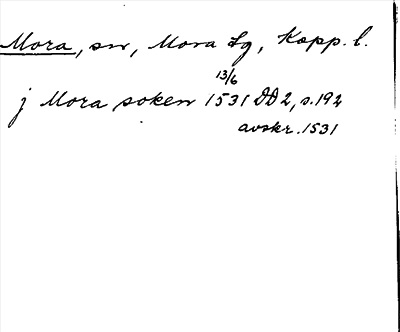 Mora, sn, Mora Lg, Kopp. l.
13/6
j Mora soken 1531 DD 2, s. 192
avskr. 1531